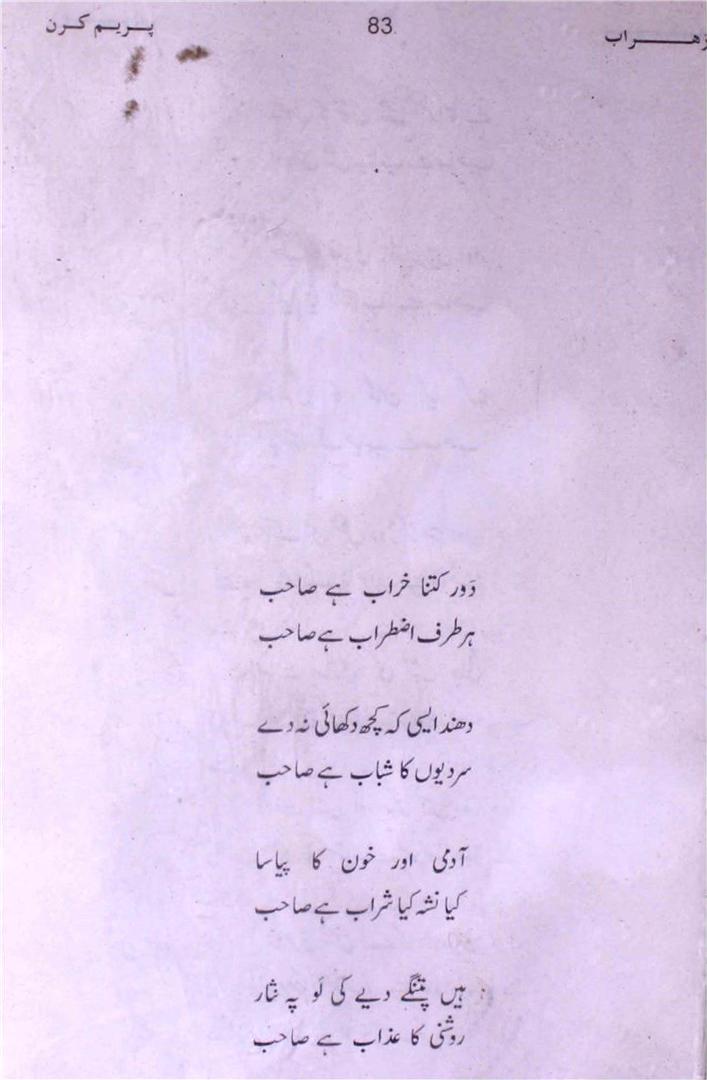 زھـــراب 83 پـریـم کـرن
دَور کتنا خراب ہے صاحب
ہر طرف اضطراب ہے صاحب
دھند ایسی کہ کچھ دکھائی نہ دے
سردیوں کا شباب ہے صاحب
آدمی اور خون کا پیاسا
کیا نشہ کیا شراب ہے صاحب
ہیں پتنگے دیے کی لَو پہ نثار
روشنی کا عذاب ہے صاحب